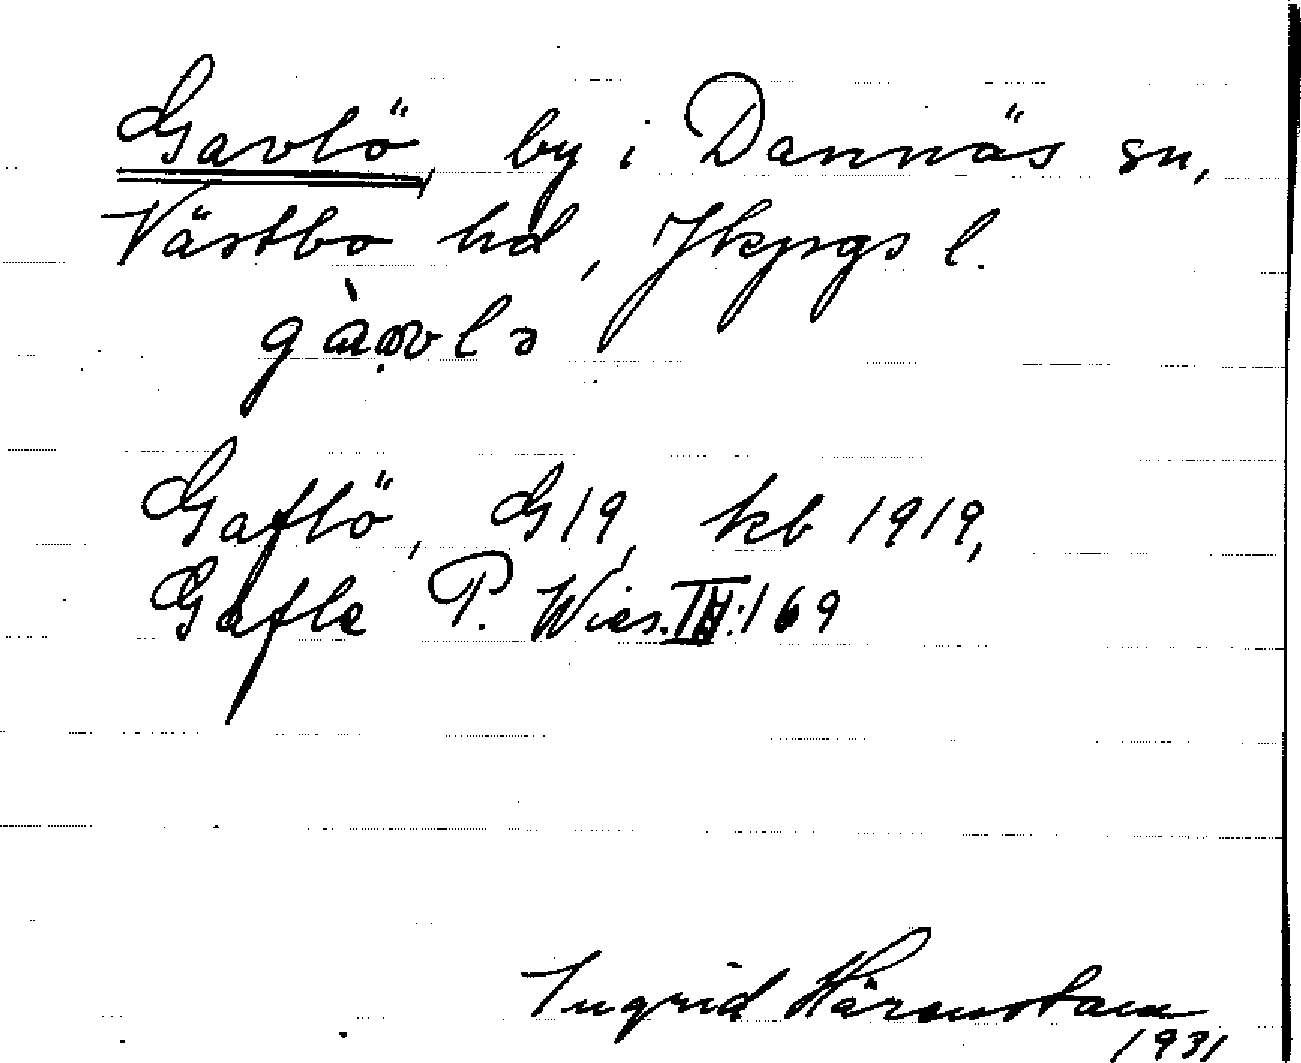 Gavlö, by i Dannäs sn,
Västbo hd, Jkpgs l.
Gaflö, G19, kb 1919,
Gafle P. Wies. IV:169
Ingrid Härenstam
1931